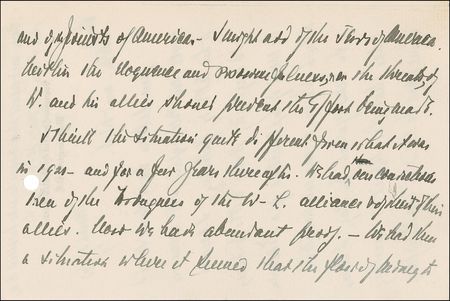 and of friends of America - I might add of the Jews of America.
Neither the eloquence and resourcefulness, nor the threats, of
W. and his allies should prevent the effort being made.
I think the situation quite different from what it was
in 1920 - and for a few years thereafter. We had then
of the wrongness of the W - L. alliance & of their
allies. Now we have abundant proof. - We had then
a situation where it seemed that the